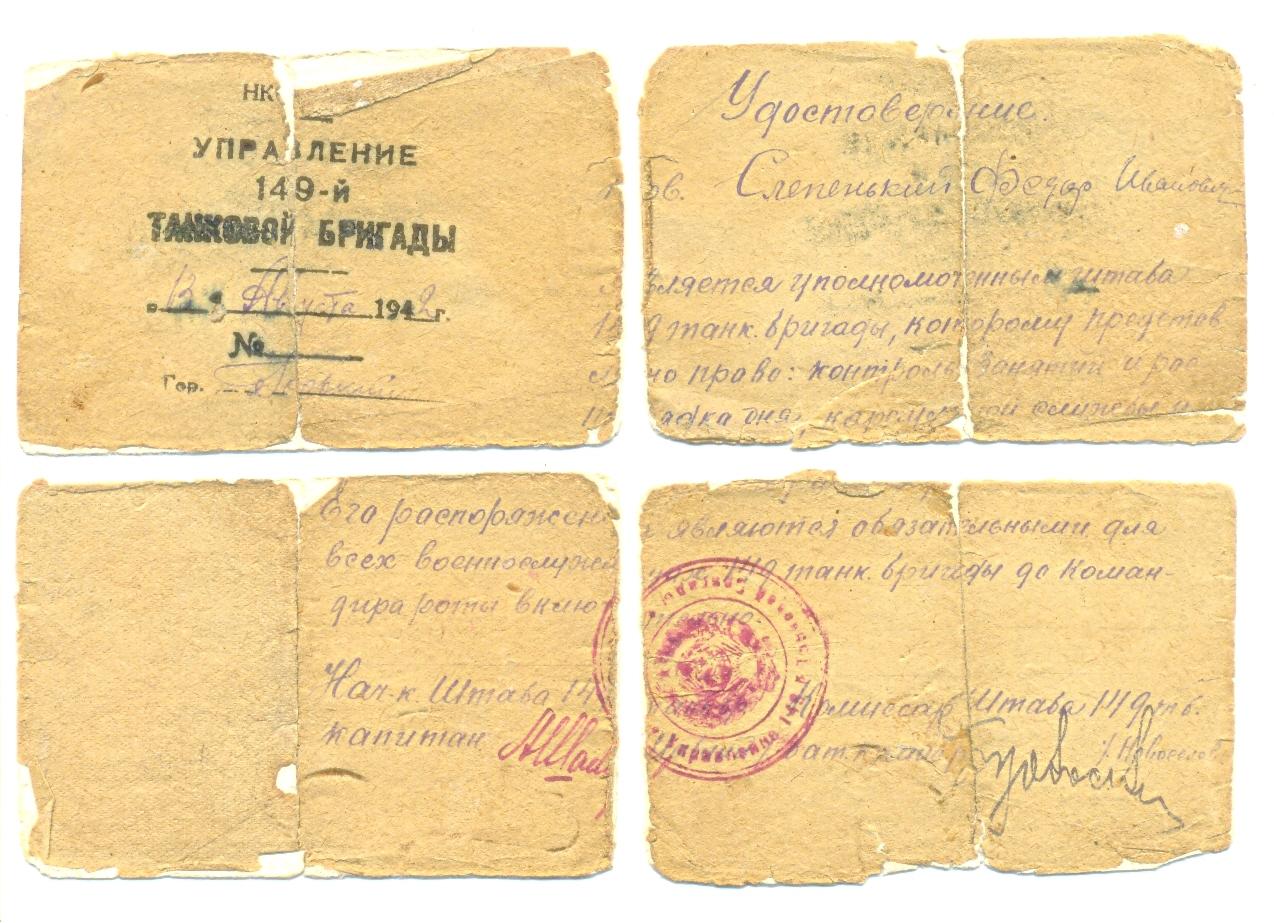 НК
УПРАВЛЕНИЕ
149-й
ТАНКОВОЙ БРИГАДЫ
13 Августа 1942 г.
№
Гор.
Удостоверение.
Слепенький Федор Иванович
является уполномоченным штаба
149 танк. бригады, которому предостав
лено право: контроль занятий и рас
порядка дня, караульной службы и
Его распоряжения являются обязательными для
всех военнослужащих 149 танк. бригады до коман-
дира роты включительно.
Нач-к Штаба 14 Комиссар Штаба 149 тб.
капитан бат. комиссар Новоселов